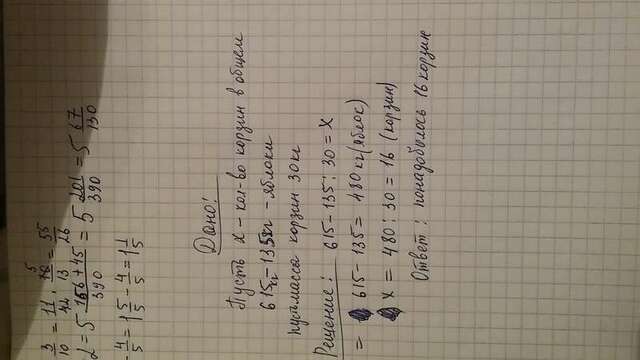 3/10 = 11/42 · 10/13 5 = 55/26
2 = 5 156+45/390 = 5 201/390 = 5 67/130
- 4/5 = 1 5/5 - 4/5 = 1 1/5
Дано!
Пусть x – кол-во корзин в общем
615кг – 135кг – яблоки
пусть массы корзин 30 кг
Решение: 615 – 135 : 30 = X
= 615 – 135 = 480 кг (яблок)
X = 480 : 30 = 16 (корзин)
Ответ: понадобилось 16 корзин